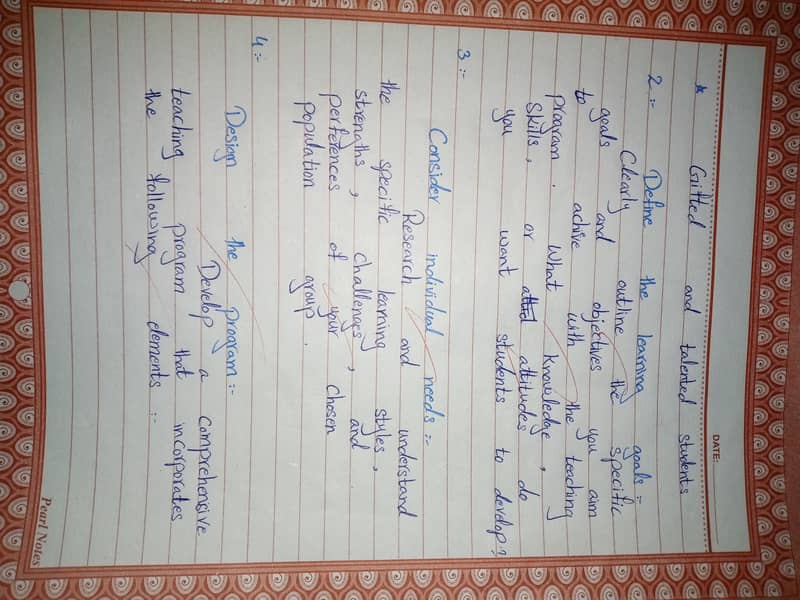 DATE:
* Gifted and talented students
2 :- Define the learning goals :-
Clearly outline the specific
goals and objectives you aim
to achive with the teaching
program. What knowledge,
skills, or attitudes do
you want students to develop?
3 :-
Consider individual needs :-
Research and understand
the specific learning styles,
strengths, challenges, and
perferences of your chosen
population group.
4 :-
Design the program :-
Develop a comprehensive
teaching program that incorporates
the following elements :-
Pearl Notes